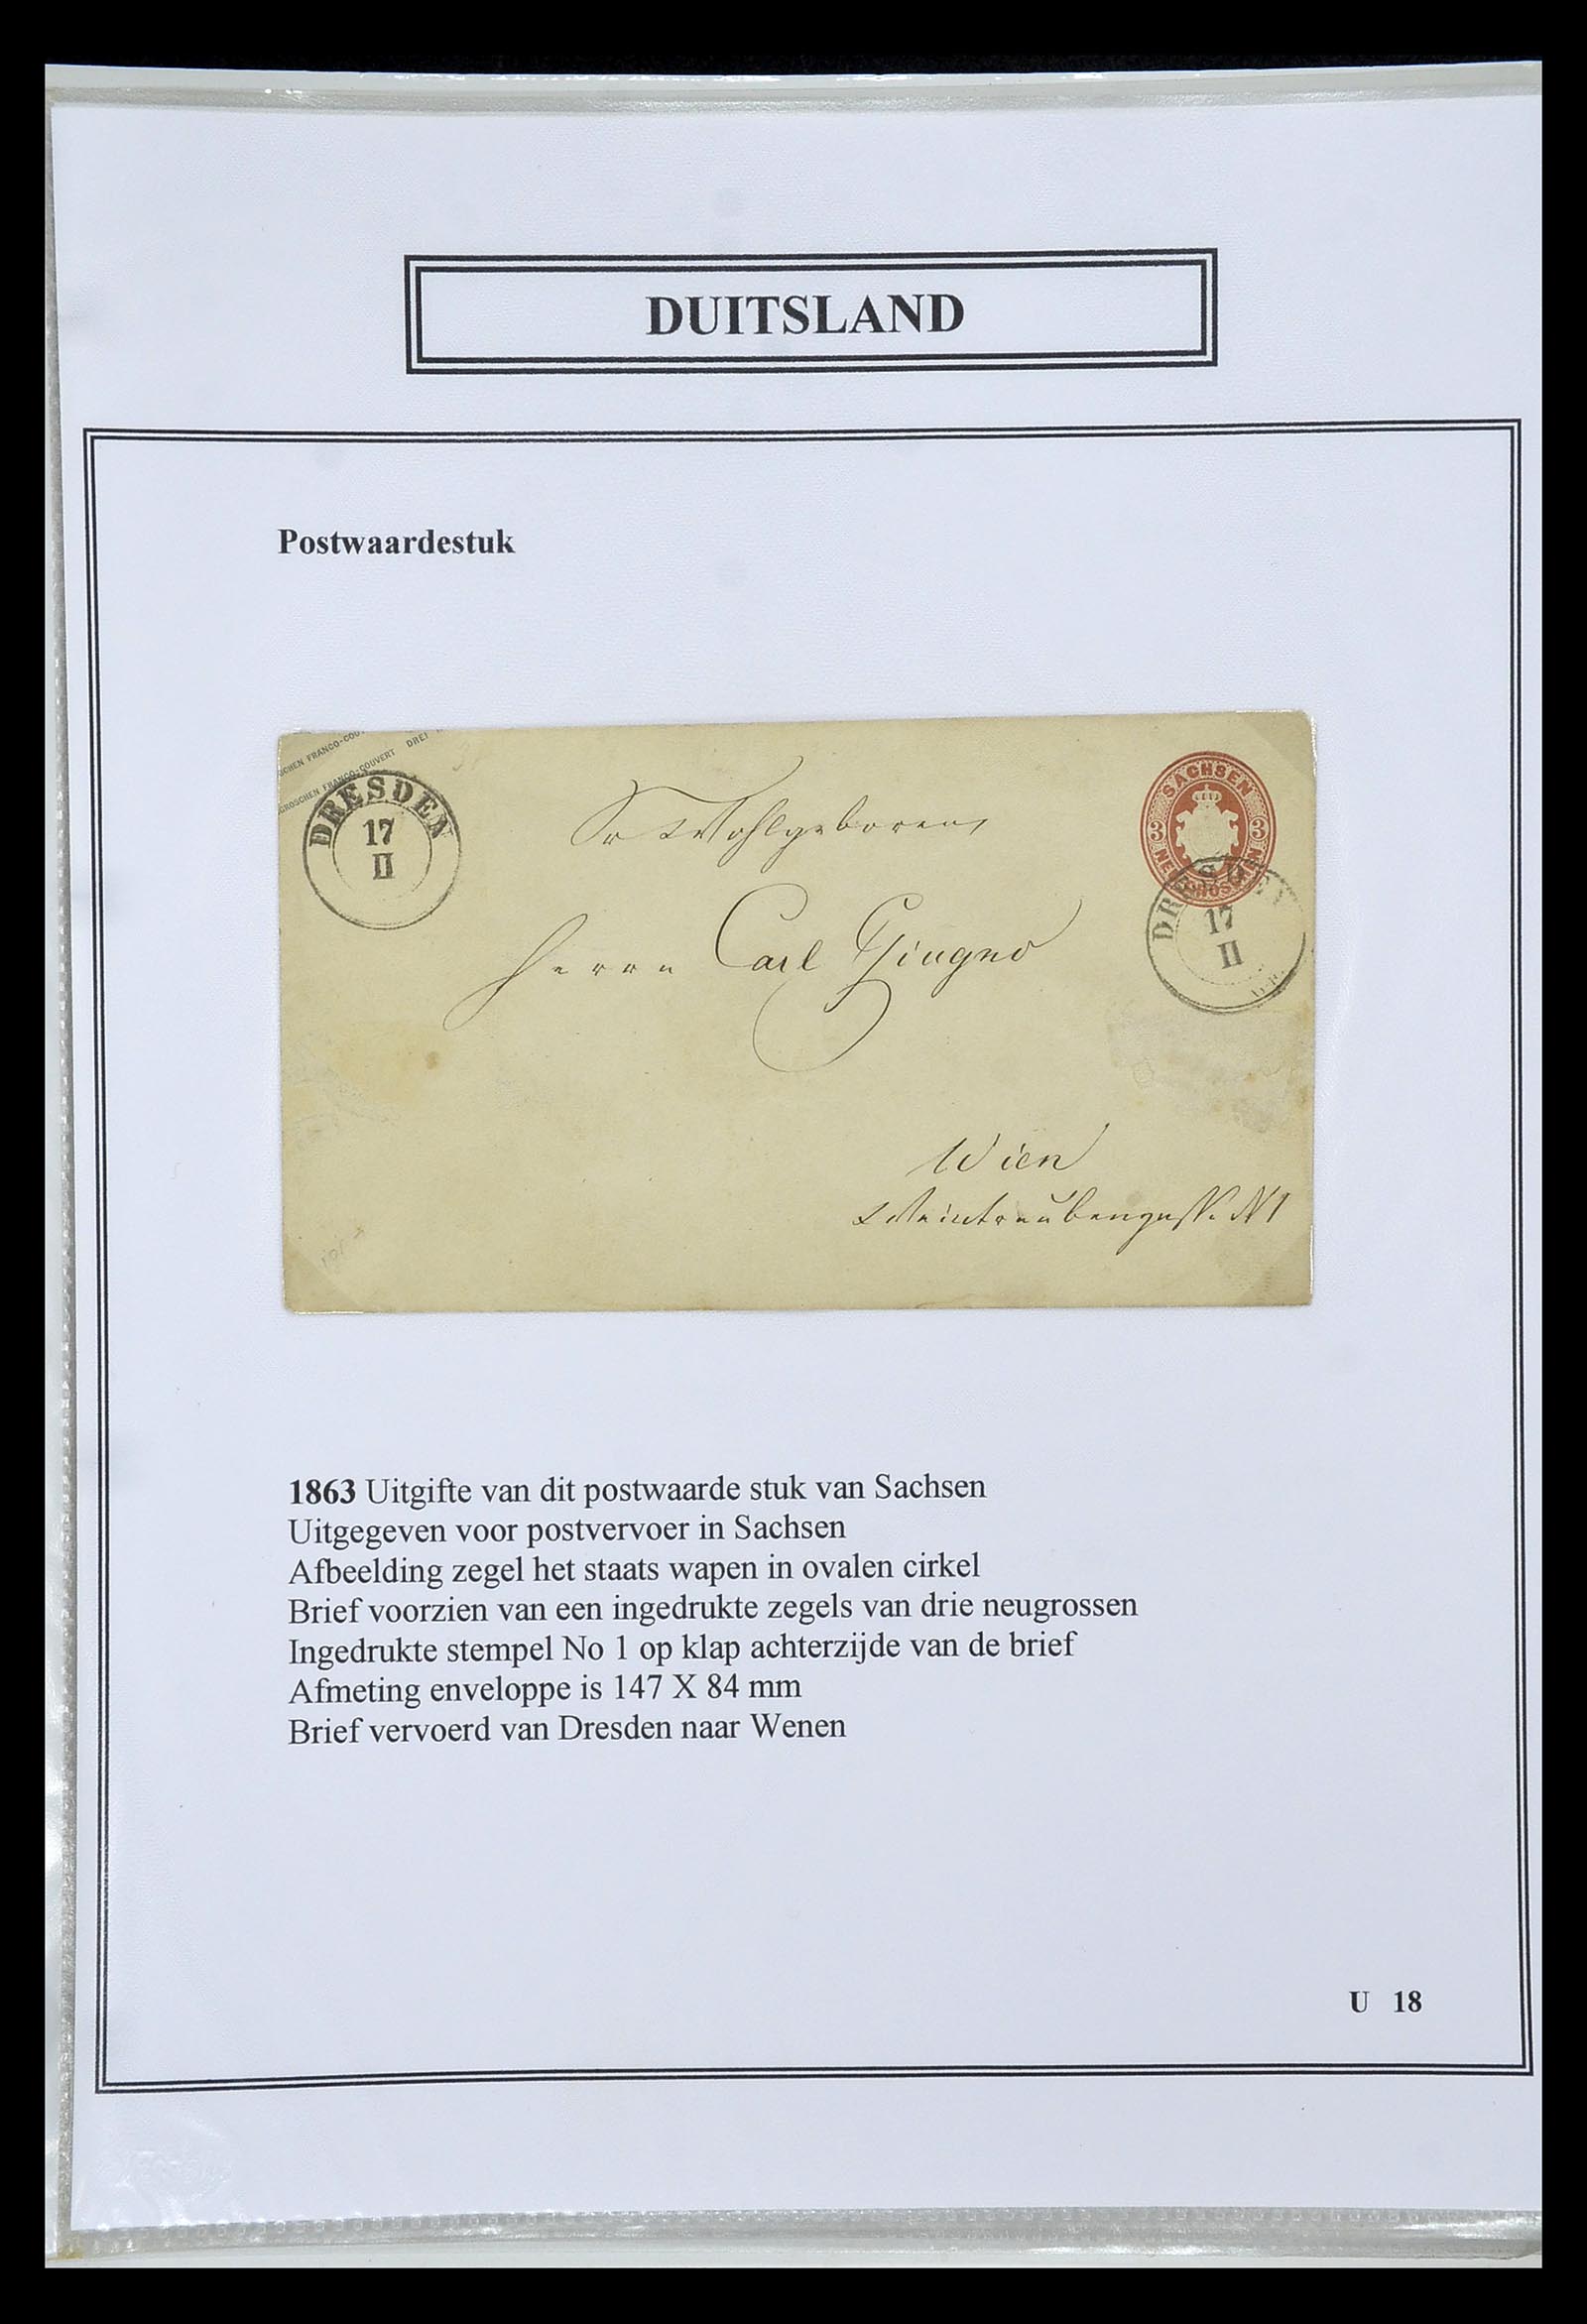 DUITSLAND
Postwaardestuk
SCHEN FRANCO-COU
GROSCHEN FRANCO-COUVERT DREI
DRESDEN
17
II
SACHSEN
3 3
DRESDEN
17
II
Sr Wohlgeboren,
Herrn Carl Giugno
Wien
Weintraubengasse N 1
1863 Uitgifte van dit postwaarde stuk van Sachsen
Uitgegeven voor postvervoer in Sachsen
Afbeelding zegel het staats wapen in ovalen cirkel
Brief voorzien van een ingedrukte zegels van drie neugrossen
Ingedrukte stempel No 1 op klap achterzijde van de brief
Afmeting enveloppe is 147 X 84 mm
Brief vervoerd van Dresden naar Wenen
U 18